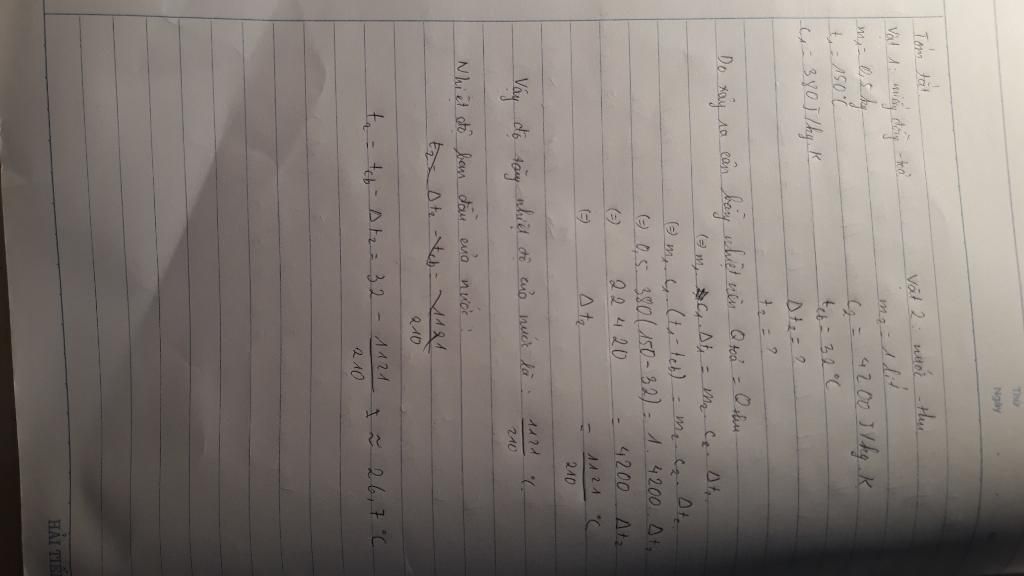 Thứ
Ngày
Tóm tắt
Vật 1: miếng đồng - tỏa
Vật 2: nước - thu
m₁ = 0,5 kg
m₂ = 1 lít
t₁ = 150°C
c₂ = 4200 J/kg.K
c₁ = 380 J/kg.K
tcb = 32°C
Δt₂ = ?
t₂ = ?
Do xảy ra cân bằng nhiệt nên Qtỏa = Qthu
(=) m₁ c₁ Δt₁ = m₂ c₂. Δt₂
(=) m₁ c₁ (t₁ - tcb) = m₂ c₂. Δt₂
(=) 0,5. 380(150-32) = 1. 4200 Δt₂
(=) 22420 = 4200 Δt₂
(=) Δt₂ = 1121/210 °C
Vậy độ tăng nhiệt độ của nước là: 1121/210 °C
Nhiệt độ ban đầu của nước:
t₂ = Δt₂ - tcb = 1121/210
t₂ = tcb - Δt₂ = 32 - 1121/210 ≈ 26,7°C
HẢI TIẾ